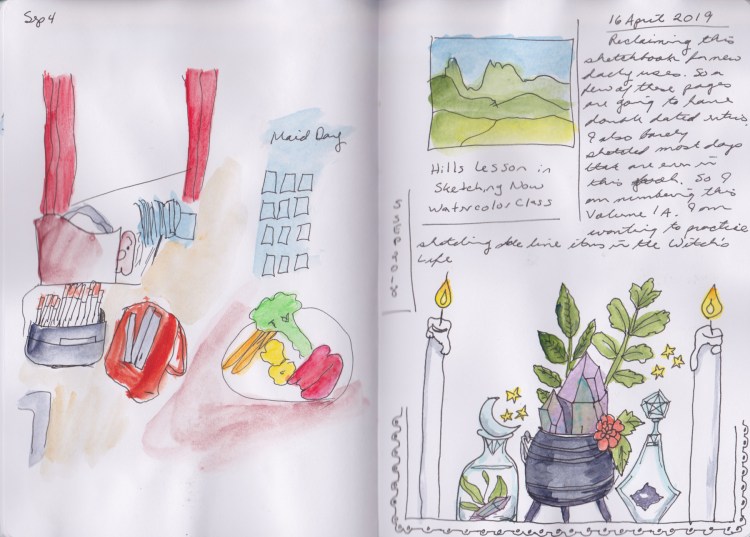 Sep 4
Maid Day
Hills Lesson in
Sketching Now
Watercolor Class
5 SEP 2018
16 April 2019
Reclaiming this
sketchbook for new
daily uses. So a
few of these pages
are going to have
double dated entries.
I also barely
sketched most days
that are even in
this book. So I
am numbering this
Volume 1A. I am
wanting to practice
sketching line items in the Witch's
Life